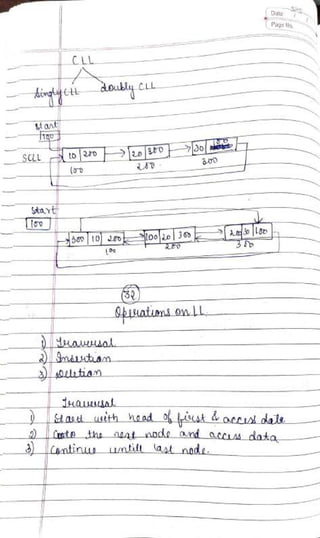 Date
Page No.
CLL
Singly CLL Doubly CLL
Start
100
SCLL 10 200 20 300 30
100 200 300
Start
100
300 10 200 100 20 300 200 30 100
100 200 300
32
Operations on LL
1) Traversal
2) Insertion
3) Deletion
Traversal
1) Start with head of first & access data
2) Goto the next node and access data
3) Continue untill last node.